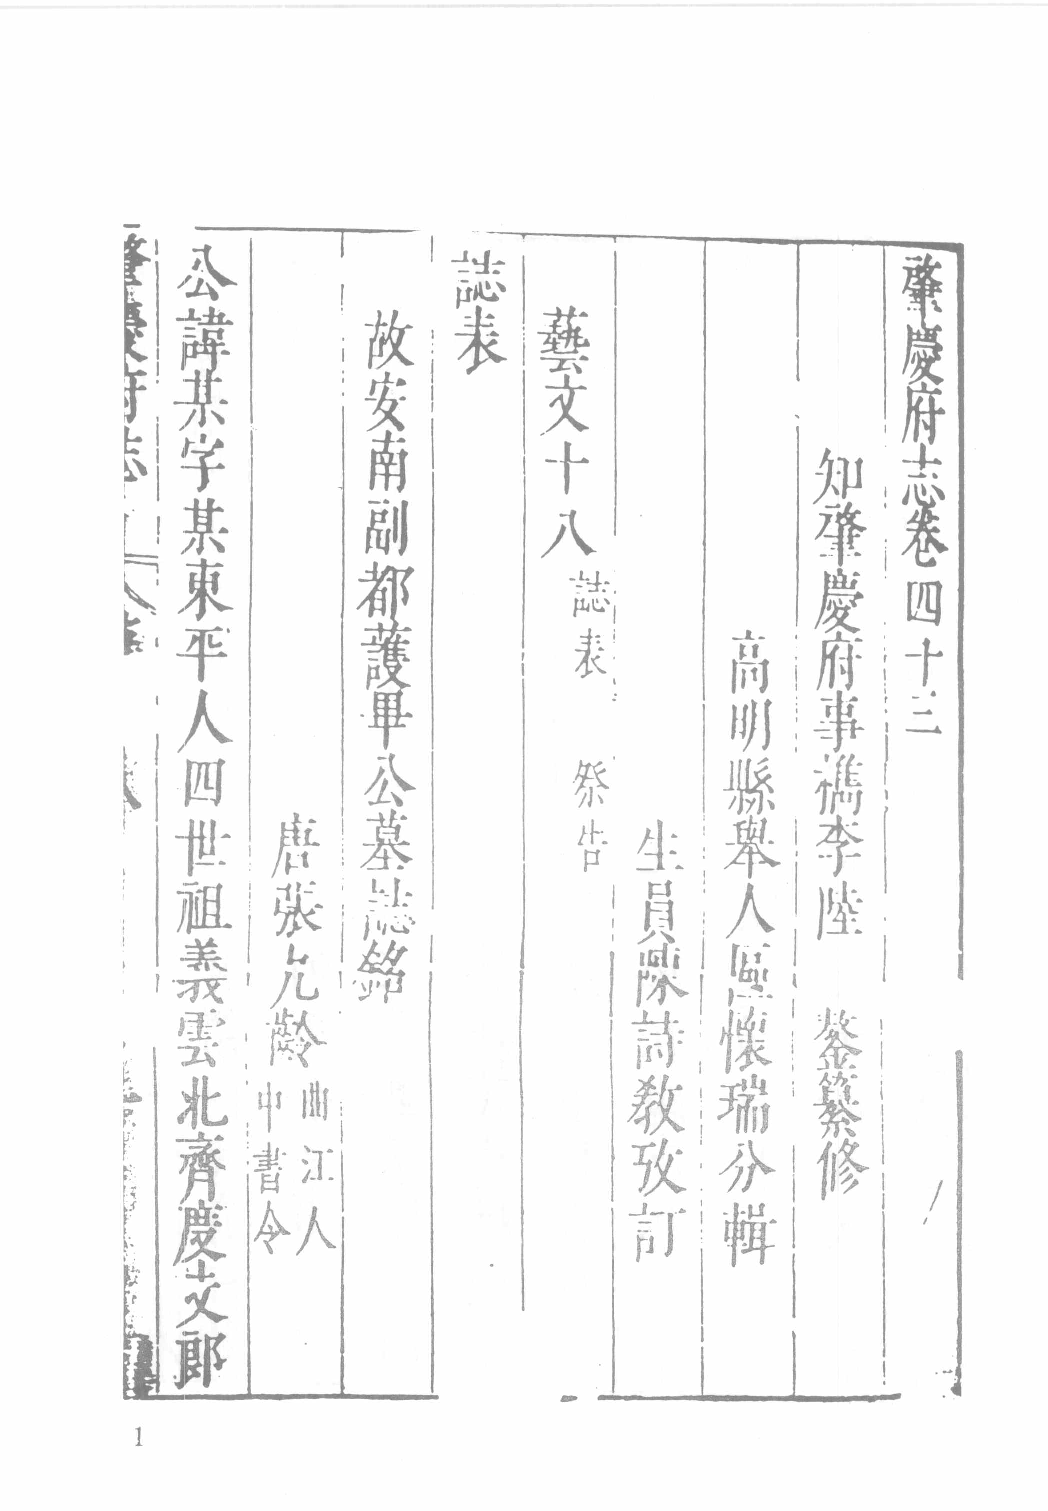 肇慶府志卷四十三
知肇慶府事檇李陸　鏊纂修
高明縣舉人區懷瑞分輯
生員陳詩教攷訂
藝文十八 誌表　祭告
誌表
故安南副都護畢公墓誌銘
唐張九齡 曲江人 中書令
公諱某字某東平人四世祖義雲北齊慶支郎
肇慶府志
1